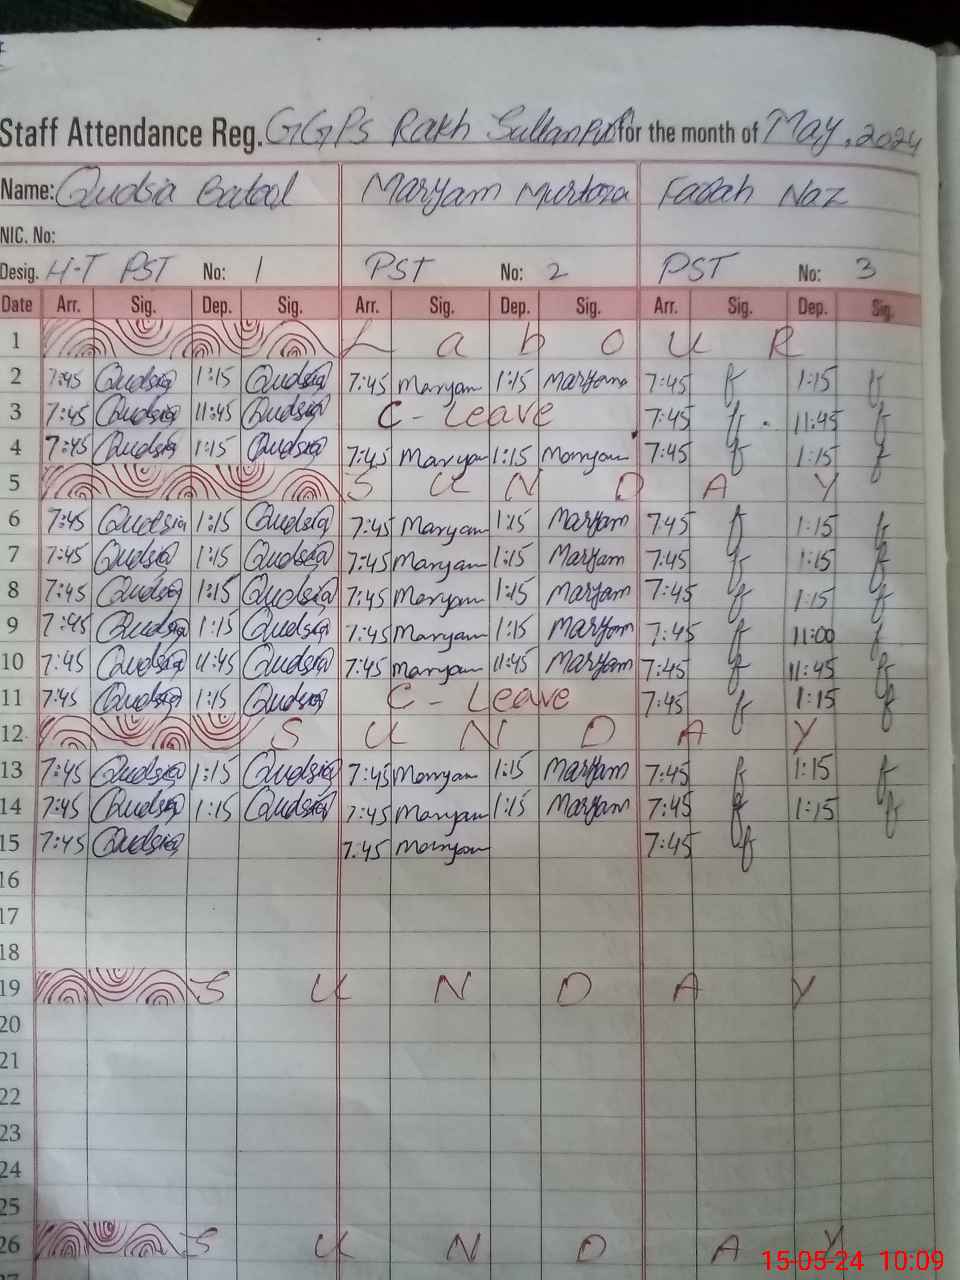 Staff Attendance Reg. GGPS Rakh Sultan Pur for the month of May, 2024
Name: Qudsia Batool Maryam Murtoza Farah Naz
NIC. No:
Desig. H-T PST No: 1 PST No: 2 PST No: 3
Date Arr. Sig. Dep. Sig. Arr. Sig. Dep. Sig. Arr. Sig. Dep. Sig.
1 L a b o u R
2 7:45 Qudsia 1:15 Qudsia 7:45 Maryam 1:15 Maryam 7:45 f 1:15 f
3 7:45 Qudsia 11:45 Qudsia C - Leave 7:45 f 11:45 f
4 7:45 Qudsia 1:15 Qudsia 7:45 Maryam 1:15 Maryam 7:45 f 1:15 f
5 S U N D A Y
6 7:45 Qudsia 1:15 Qudsia 7:45 Maryam 1:15 Maryam 7:45 f 1:15 f
7 7:45 Qudsia 1:15 Qudsia 7:45 Maryam 1:15 Maryam 7:45 f 1:15 f
8 7:45 Qudsia 1:15 Qudsia 7:45 Maryam 1:15 Maryam 7:45 f 1:15 f
9 7:45 Qudsia 1:15 Qudsia 7:45 Maryam 1:15 Maryam 7:45 f 11:00 f
10 7:45 Qudsia 11:45 Qudsia 7:45 Maryam 11:45 Maryam 7:45 f 11:45 f
11 7:45 Qudsia 1:15 Qudsia C - Leave 7:45 f 1:15 f
12 S U N D A Y
13 7:45 Qudsia 1:15 Qudsia 7:45 Maryam 1:15 Maryam 7:45 f 1:15 f
14 7:45 Qudsia 1:15 Qudsia 7:45 Maryam 1:15 Maryam 7:45 f 1:15 f
15 7:45 Qudsia 7:45 Maryam 7:45 f
16
17
18
19 S U N D A Y
20
21
22
23
24
25
26 S U N D A Y
15-05-24 10:09